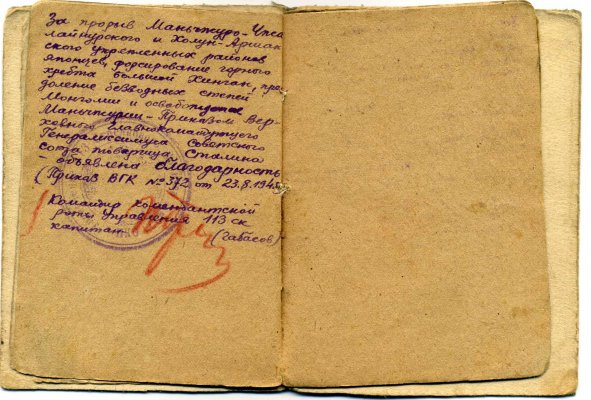 За прорыв Маньчжуро-Чжа
лайнурского и Холун-Аршан
ского укрепленных районов
японцев, форсирование горного
хребта большой Хинган, прео
доление безводных степей
Монголии и освобождение
Маньчжурии - Приказом Вер
ховного Главнокомандующего
Генералиссимуса Советского
союза товарища Сталина
- объявлена благодарность
(Приказ ВГК № 372 от 23.8.1945
Командир комендантской
роты Управления 113 ск
капитан (Габасов)